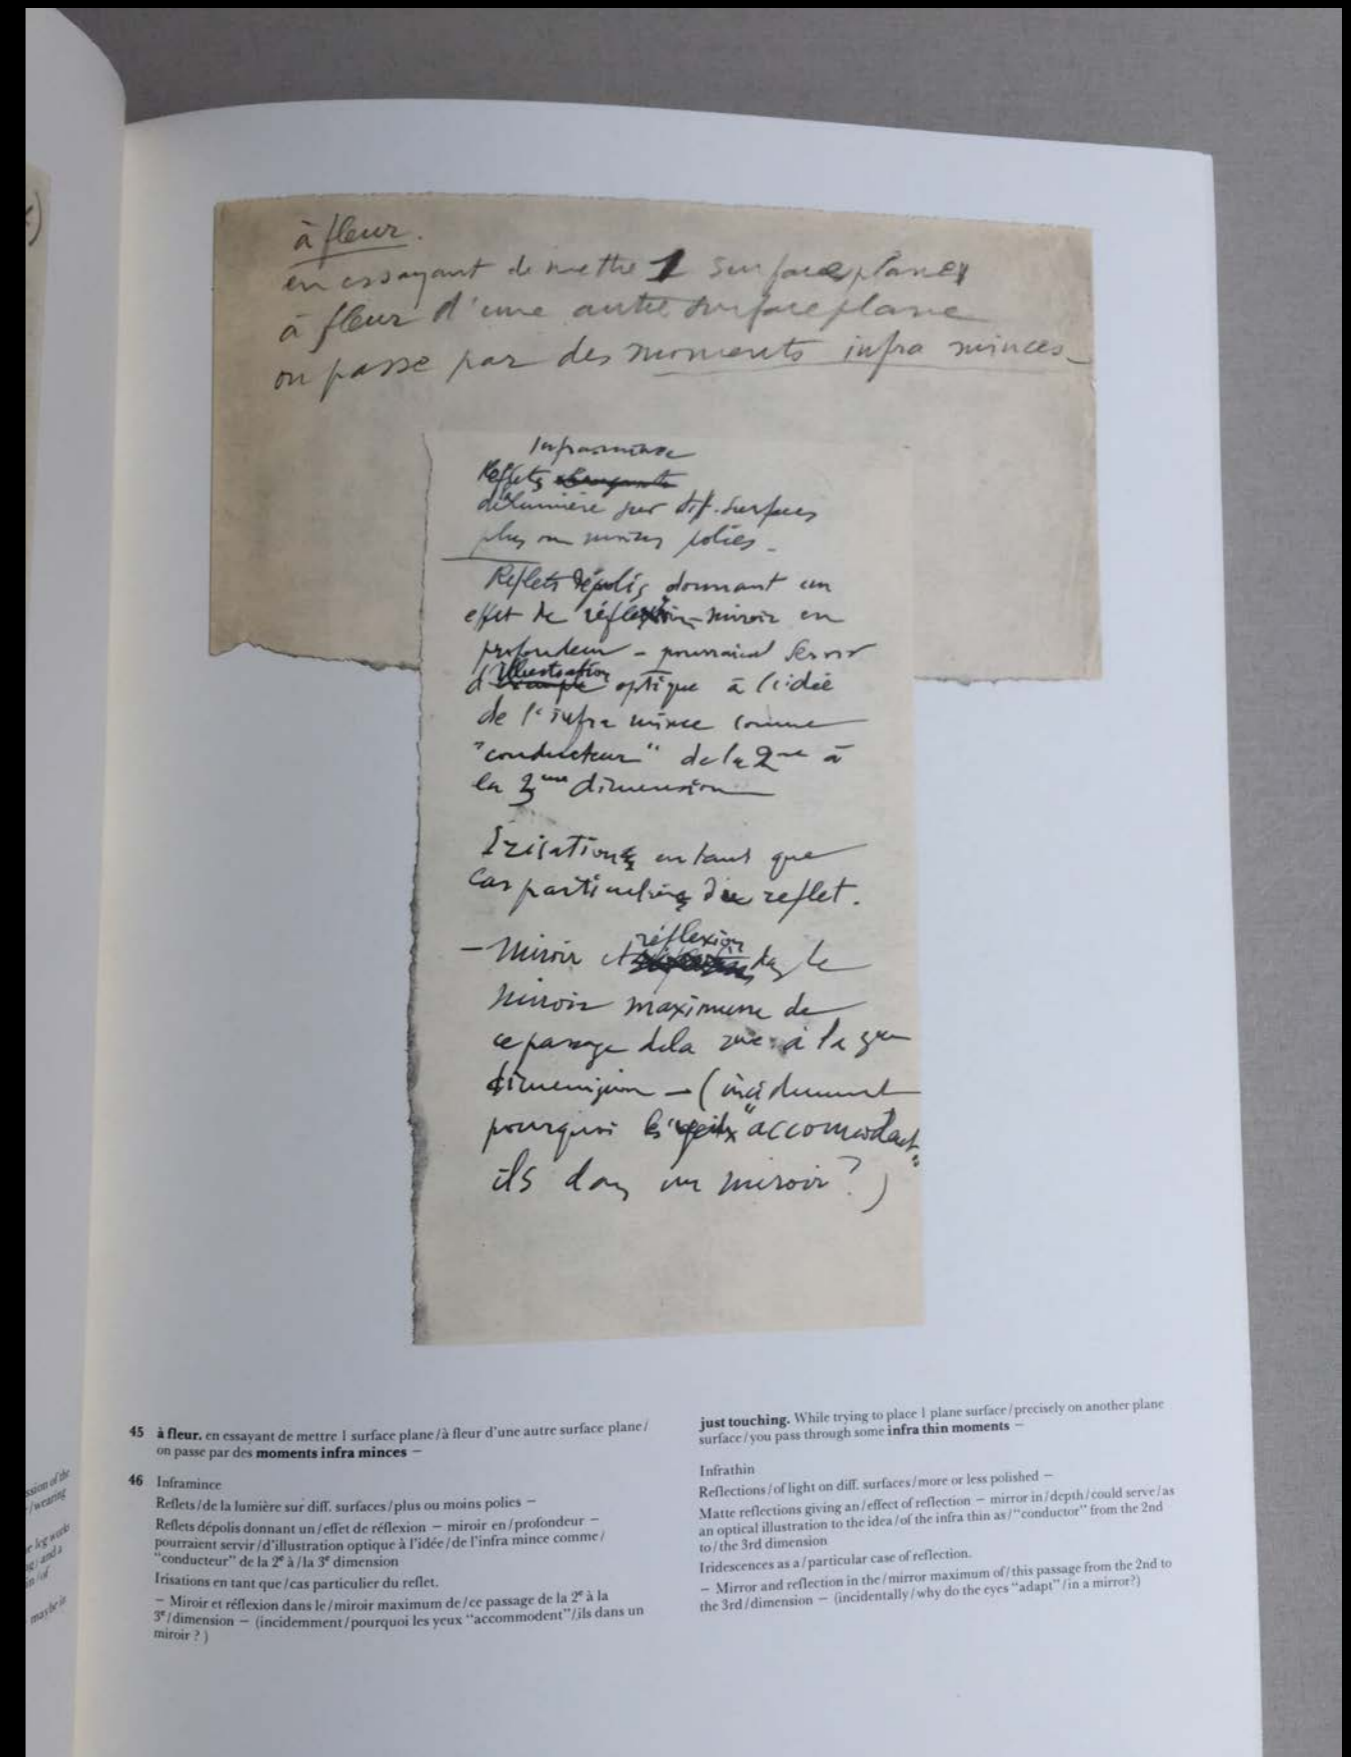 à fleur.
en essayant de mettre 1 surface plane
à fleur d'une autre surface plane
on passe par des moments infra minces –
Inframince
Reflets
de la lumière sur diff. surfaces
plus ou moins polies –
Reflets dépolis donnant un
effet de réflexion – miroir en
profondeur – pourraient servir
d'illustration optique à l'idée
de l'infra mince comme
"conducteur" de la 2me à
la 3me dimension
Irisations en tant que
cas particulier du reflet.
– Miroir et réflexion dans le
miroir maximum de
ce passage de la 2me à la 3me
dimension – (incidemment
pourquoi les yeux "accommodent"
ils dans un miroir ? )
45 à fleur. en essayant de mettre 1 surface plane/à fleur d'une autre surface plane/
on passe par des moments infra minces –
46 Inframince
Reflets/de la lumière sur diff. surfaces/plus ou moins polies –
Reflets dépolis donnant un/effet de réflexion – miroir en/profondeur –
pourraient servir/d'illustration optique à l'idée/de l'infra mince comme/
"conducteur" de la 2e à/la 3e dimension
Irisations en tant que/cas particulier du reflet.
– Miroir et réflexion dans le/miroir maximum de/ce passage de la 2e à la
3e/dimension – (incidemment/pourquoi les yeux "accommodent"/ils dans un
miroir ? )
just touching. While trying to place 1 plane surface/precisely on another plane
surface/you pass through some infra thin moments –
Infrathin
Reflections/of light on diff. surfaces/more or less polished –
Matte reflections giving an/effect of reflection – mirror in/depth/could serve/as
an optical illustration to the idea/of the infra thin as/"conductor" from the 2nd
to/the 3rd dimension
Iridescences as a/particular case of reflection.
– Mirror and reflection in the/mirror maximum of/this passage from the 2nd to
the 3rd/dimension – (incidentally/why do the eyes "adapt"/in a mirror?)
of the
/wearing
leg works
and a
/of
maybe in